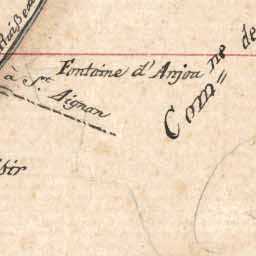 Fontaine d'Anjou
à St. Aignan
Com.ne de